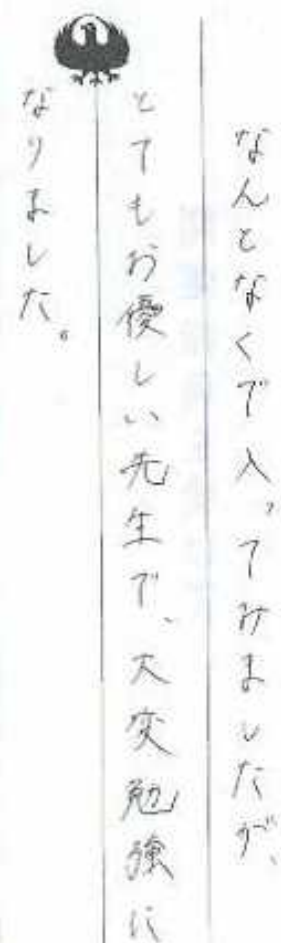 なんとなくで入ってみましたが、
とてもお優しい先生で、大変勉強に
なりました。